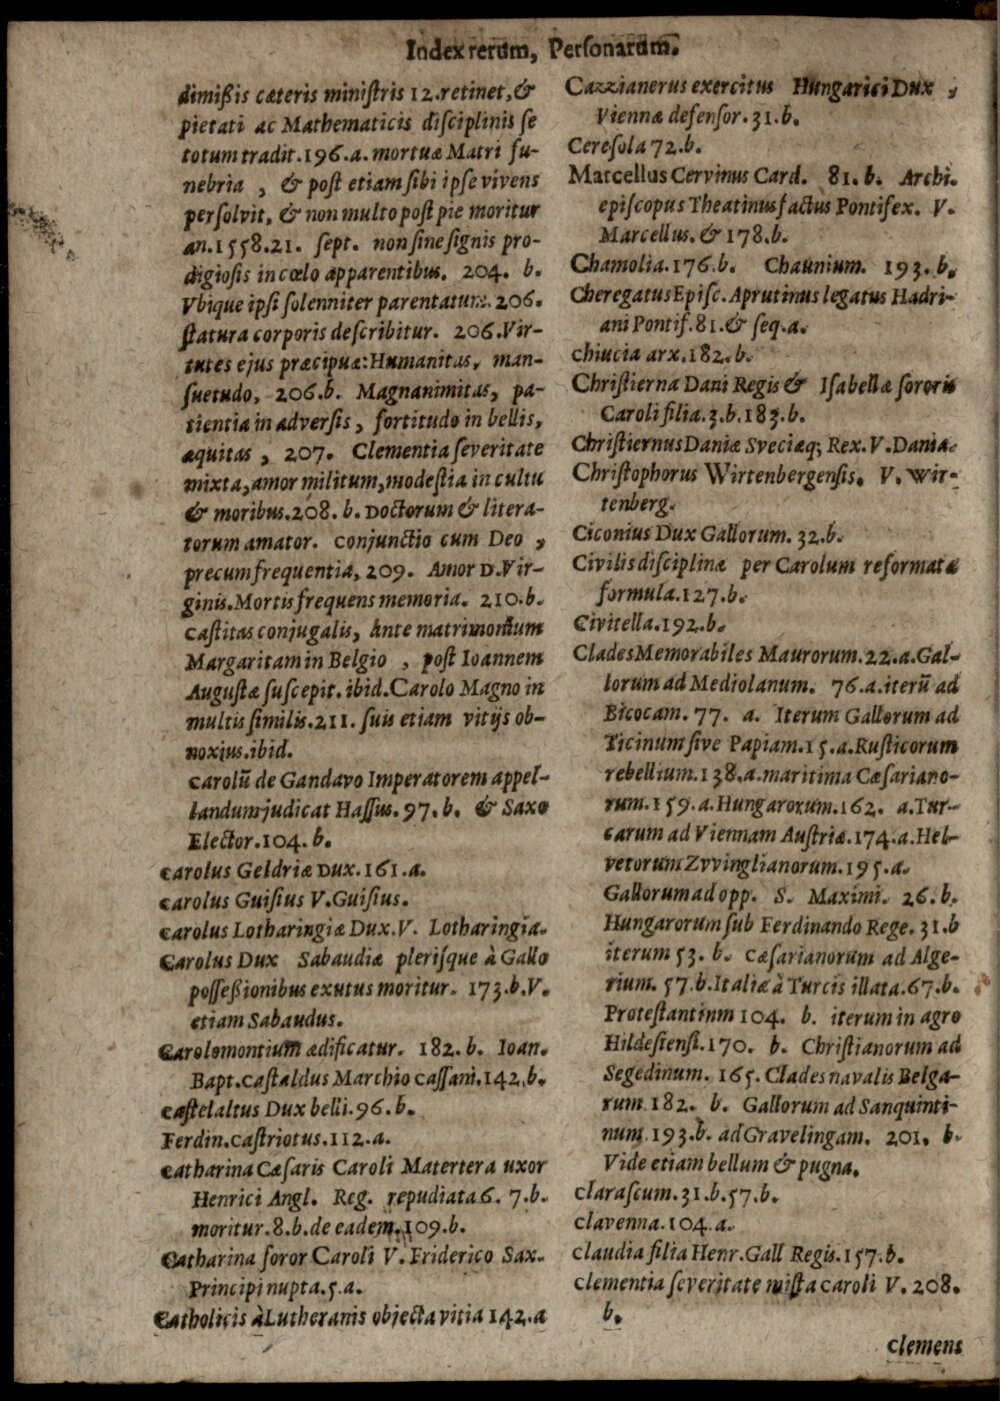 Index rerum, Personarum.
dimißis cæteris miniſtris 12. retinet, &
pietati ac Mathematicis diſciplinis ſe
totum tradit. 196. a. mortuæ Matri fu-
nebria , & poſt etiam ſibi ipſe vivens
perſolvit, & non multo poſt pie moritur
an. 1558. 21. ſept. non ſine ſignis pro-
digioſis in cœlo apparentibus. 204. b.
Vbique ipſi ſolenniter parentatum. 206.
ſtatura corporis deſcribitur. 206. Vir-
tutes ejus præcipuæ: Humanitas, man-
ſuetudo, 206. b. Magnanimitas, pa-
tientia in adverſis, fortitudo in bellis,
æquitas , 207. Clementia ſeveritate
mixta, amor militum, modeſtia in cultu
& moribus. 208. b. Doctorum & litera-
torum amator. conjunctio cum Deo ,
precum frequentia, 209. Amor D. Vir-
ginis. Mortis frequens memoria. 210. b.
Caſtitas conjugalis, Ante matrimonium
Margaritam in Belgio , poſt Ioannem
Auguſtæ ſuſcepit. ibid. Carolo Magno in
multis ſimilis. 211. ſuis etiam vitijs ob-
noxius. ibid.
Carolū de Gandavo Imperatorem appel-
landum judicat Haſſus. 97. b. & Saxo
Elector. 104. b.
Carolus Geldriæ Dux. 161. a.
Carolus Guiſius V. Guiſius.
Carolus Lotharingiæ Dux. V. Lotharingia.
Carolus Dux Sabaudiæ pleriſque à Gallo
poſſeßionibus exutus moritur. 173. b. V.
etiam Sabaudus.
Carolomontium ædificatur. 182. b. Ioan.
Bapt. Caſtaldus Marchio Caſſani. 142. b.
Caſtelaltus Dux belli. 96. b.
Ferdin. Caſtriotus. 112. a.
Catharina Cæſaris Caroli Matertera uxor
Henrici Angl. Reg. repudiata 6. 7. b.
moritur. 8. b. de eadem. 109. b.
Catharina ſoror Caroli V. Friderico Sax.
Principi nupta. 5. a.
Catholicis à Lutheranis objecta vitia 142. a
Cazzianerus exercitus Hungarici Dux ,
Viennæ defenſor. 31. b.
Cereſola 72. b.
Marcellus Cervinus Card. 81. b. Archi.
epiſcopus Theatinus factus Pontifex. V.
Marcellus. & 178. b.
Chamolia. 176. b. Chaunium. 193. b.
Cheregatus Epiſc. Aprutinus legatus Hadri-
ani Pontif. 81. & ſeq. a.
Chiucia arx. 182. b.
Chriſtierna Dani Regis & Iſabellæ ſororis
Caroli filia. 3. b. 183. b.
Chriſtiernus Daniæ Sveciæq; Rex. V. Dania.
Chriſtophorus Wirtenbergenſis. V. Wir-
tenberg.
Ciconius Dux Gallorum. 32. b.
Civilis diſciplinæ per Carolum reformatæ
formula. 127. b.
Civitella. 192. b.
Clades Memorabiles Maurorum. 22. a. Gal-
lorum ad Mediolanum. 76. a. iterū ad
Bicocam. 77. a. Iterum Gallorum ad
Ticinum ſive Papiam. 15. a. Ruſticorum
rebellium. 138. a. maritima Cæſariano-
rum. 159. a. Hungarorum. 162. a. Tur-
carum ad Viennam Auſtriæ. 174. a. Hel-
vetorum Zvvinglianorum. 195. a.
Gallorum ad opp. S. Maximi. 26. b.
Hungarorum ſub Ferdinando Rege. 31. b
iterum 53. b. Cæſarianorum ad Alge-
rium. 57. b. Italiæ à Turcis illata. 67. b.
Proteſtantinm 104. b. iterum in agro
Hildeſienſi. 170. b. Chriſtianorum ad
Segedinum. 165. Clades navalis Belga-
rum 182. b. Gallorum ad Sanquinti-
num 193. b. ad Gravelingam. 201. b.
Vide etiam bellum & pugna.
Claraſcum. 31. b. 57. b.
Clavenna. 104. a.
Claudia filia Henr. Gall Regis. 157. b.
Clementia ſeveritate miſta Caroli V. 208.
b.
Clemens